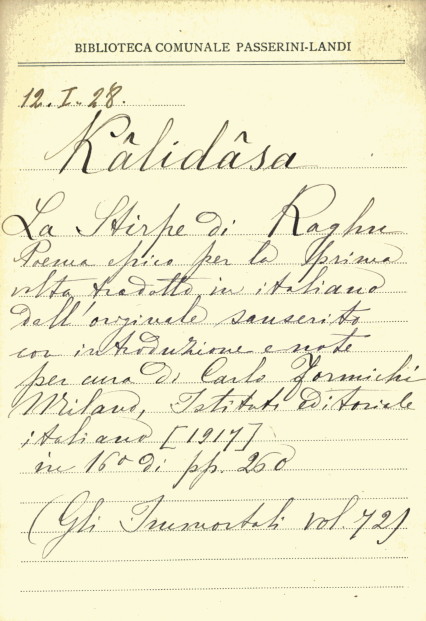 BIBLIOTECA COMUNALE PASSERINI-LANDI
12.I.28.
Kâlidâsa
La Stirpe di Raghu
Poema epico per la prima
volta tradotto in italiano
dall'originale sanscrito
con introduzione e note
per cura di Carlo Formichi
Milano, Istituto editoriale
italiano [1917]
in 16º di pp. 260
(Gli Immortali vol. 72)